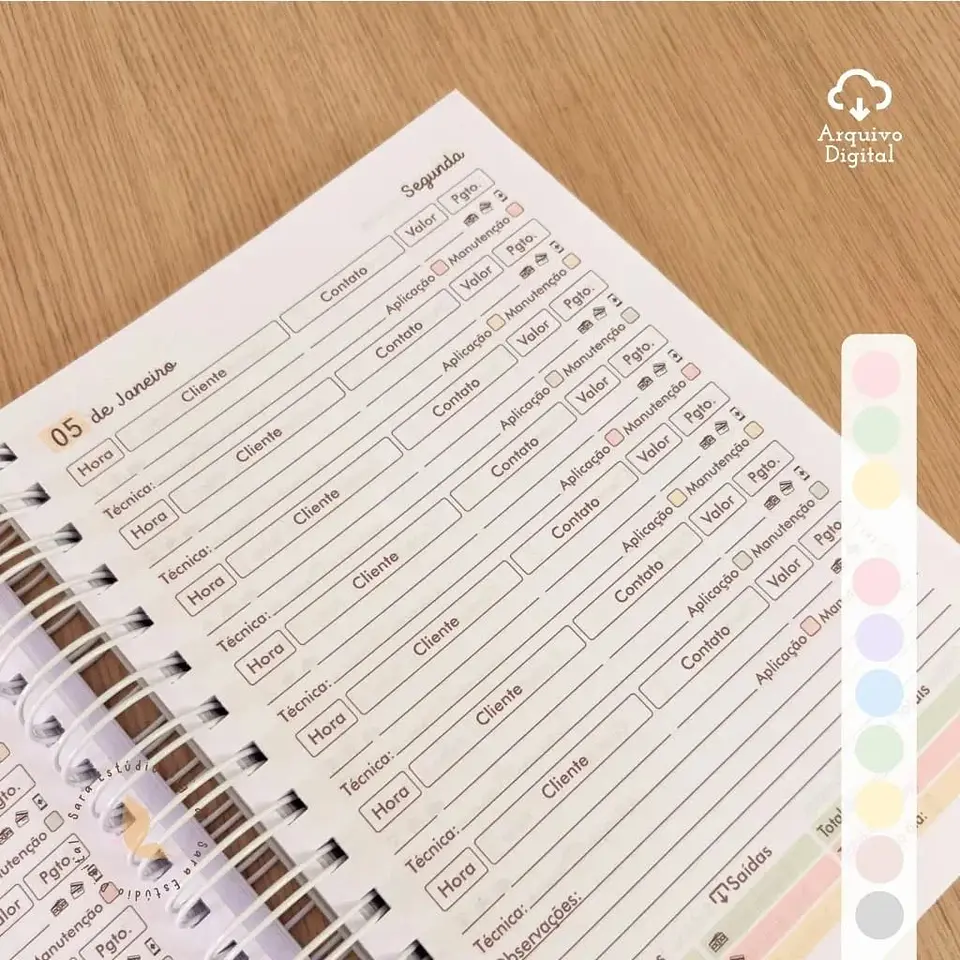 Arquivo
Digital
05 de Janeiro Segunda
Hora Cliente Contato Valor Pgto.
Técnica: Aplicação Manutenção
Hora Cliente Contato Valor Pgto.
Técnica: Aplicação Manutenção
Hora Cliente Contato Valor Pgto.
Técnica: Aplicação Manutenção
Hora Cliente Contato Valor Pgto.
Técnica: Aplicação Manutenção
Hora Cliente Contato Valor Pgto.
Técnica: Aplicação Manutenção
Hora Cliente Contato Valor Pgto.
Técnica: Aplicação Manutenção
Hora Cliente Contato Valor Pgto
Técnica: Aplicação
Observações:
Saídas
Sara Estúdio
Sara Estúdio
Pgto.
Manutenção
Valor Pgto.
Manutenção
Pgto.